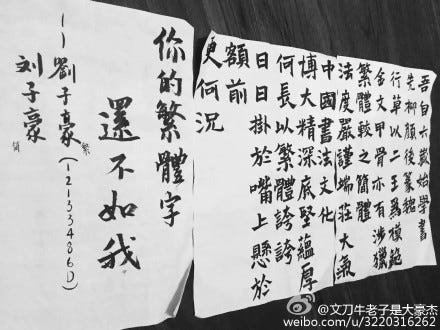 吾自六歲始學書
先柳顏後篆魏
行草以二王為模範
金文甲骨亦有涉獵
繁體較之簡體
法度嚴謹端莊大氣
中國書法文化
博大精深底堅蘊厚
何長以繁體誇誇
日日掛於嘴上懸於
額前
更何況
你的繁體字
還不如我
——劉子豪(121334860)
繁
刘子豪
简
@文刀牛老子是大豪杰
weibo.com/u/3220316262